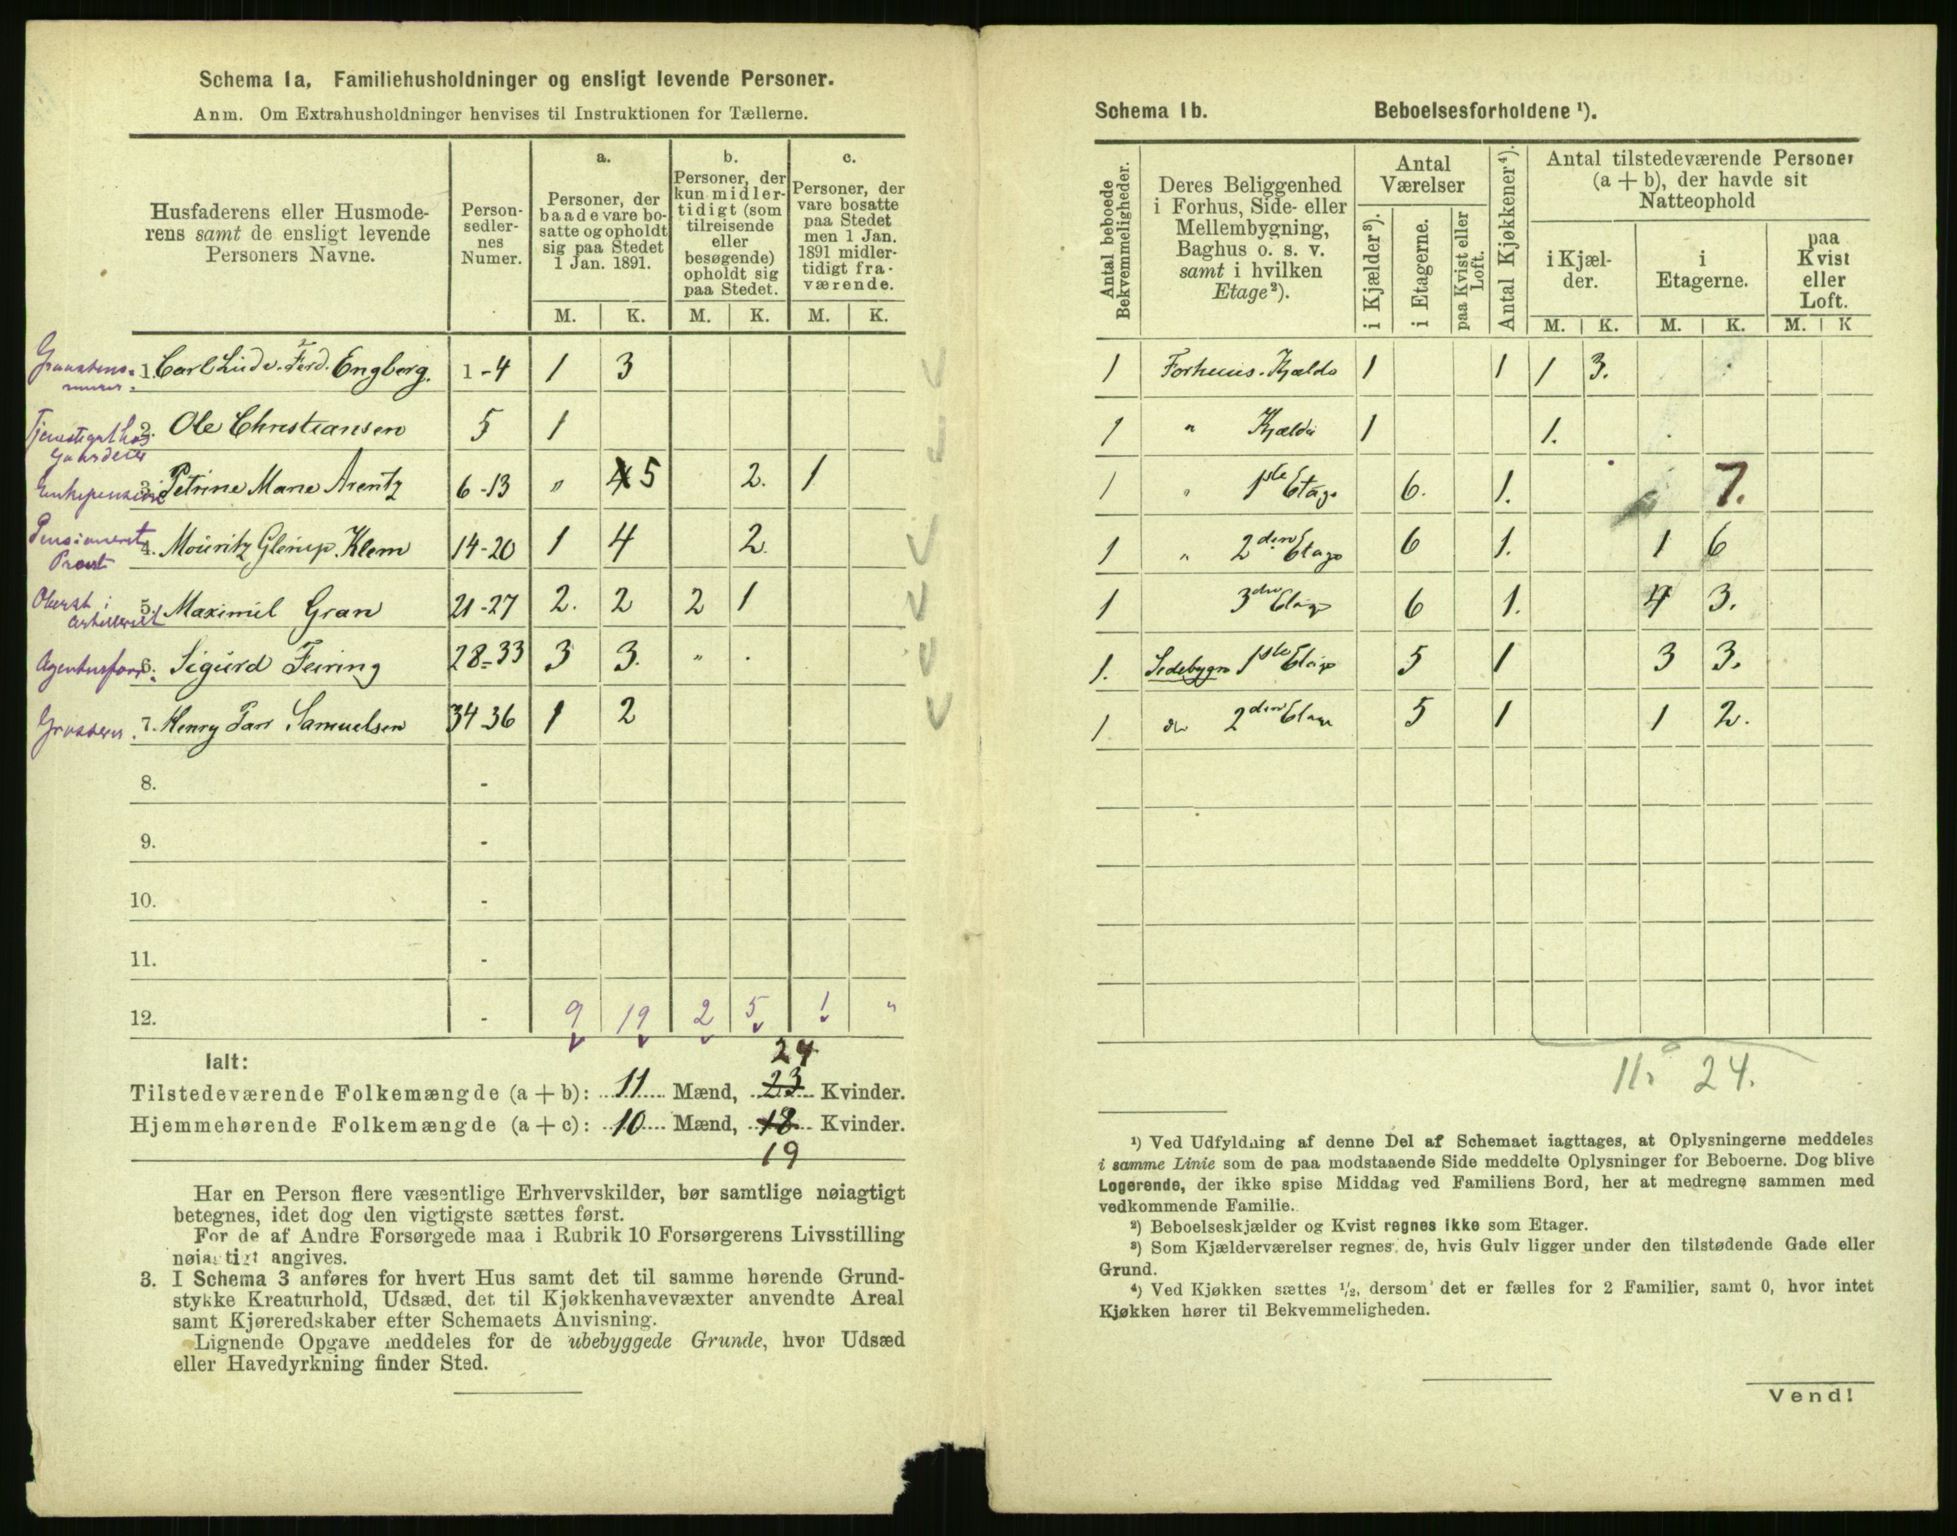 Schema 1a, Familiehusholdninger og ensligt levende Personer.
Anm. Om Extrahusholdninger henvises til Instruktionen for Tællerne.
Husfaderens eller Husmode-
rens samt de ensligt levende
Personers Navne.
Person-
sedler-
nes
Numer.
a.
Personer, der
baade vare bo-
satte og opholdt
sig paa Stedet
1 Jan. 1891.
b.
Personer, der
kun midler-
tidigt (som
tilreisende
eller
besøgende)
opholdt sig
paa Stedet.
c.
Personer, der
vare bosatte
paa Stedet
men 1 Jan.
1891 midler-
tidigt fra-
værende.
M. K. M. K. M. K.
1. Carl Ludv. Ferd. Engberg. 1-4 1 3
2. Ole Christiansen 5 1
3. Petrine Marie Arentz 6-13 " 4 5 2. 1
Pensioneret
Provst
4. Mouritz Glerup Klem 14-20 1 4 2.
Oberst i
Artilleriet
5. Maximil Gran 21-27 2. 2 2 1
6. Sigurd Feiring 28-33 3 3. "
7. Henry Parr Samuelsen 34-36 1 2
8. -
9. -
10. -
11. -
12. - 9 19 2 5 1 "
Ialt:
24
Tilstedeværende Folkemængde (a + b): 11 Mænd, 23 Kvinder.
Hjemmehørende Folkemængde (a + c): 10 Mænd, 18 Kvinder.
19
Har en Person flere væsentlige Erhvervskilder, bør samtlige nøiagtigt
betegnes, idet dog den vigtigste sættes først.
For de af Andre Forsørgede maa i Rubrik 10 Forsørgerens Livsstilling
nøiagtigt angives.
3. I Schema 3 anføres for hvert Hus samt det til samme hørende Grund-
stykke Kreaturhold, Udsæd, det til Kjøkkenhavevæxter anvendte Areal
samt Kjøreredskaber efter Schemaets Anvisning.
Lignende Opgave meddeles for de ubebyggede Grunde, hvor Udsæd
eller Havedyrkning finder Sted.
Schema 1b. Beboelsesforholdene ¹).
Antal beboede
Bekvemmeligheder.
Deres Beliggenhed
i Forhus, Side- eller
Mellembygning,
Baghus o. s. v.
samt i hvilken
Etage²).
Antal
Værelser
i Kjælder³).
i Etagerne.
paa Kvist eller
Loft.
Antal Kjøkkener⁴).
Antal tilstedeværende Personer
(a + b), der havde sit
Natteophold
i Kjæl-
der.
i
Etagerne.
paa
Kvist
eller
Loft.
M. K. M. K. M. K
1 Forhuus. Kjælde 1 1 1 3.
1 " Kjælde 1 1.
1 " 1ste Etage 6. 1. 7.
1 " 2den Etage 6 1. 1 6
1 3die Etage 6 1. 4 3.
1. Sidebygn 1ste Etage 5 1 3 3.
1 do 2den Etage 5 1 1 2.
11. 24.
¹) Ved Udfyldning af denne Del af Schemaet iagttages, at Oplysningerne meddeles
i samme Linie som de paa modstaaende Side meddelte Oplysninger for Beboerne. Dog blive
Logerende, der ikke spise Middag ved Familiens Bord, her at medregne sammen med
vedkommende Familie.
²) Beboelseskjælder og Kvist regnes ikke som Etager.
³) Som Kjælderværelser regnes de, hvis Gulv ligger under den tilstødende Gade eller
Grund.
⁴) Ved Kjøkken sættes ½, dersom det er fælles for 2 Familier, samt 0, hvor intet
Kjøkken hører til Bekvemmeligheden.
Vend!